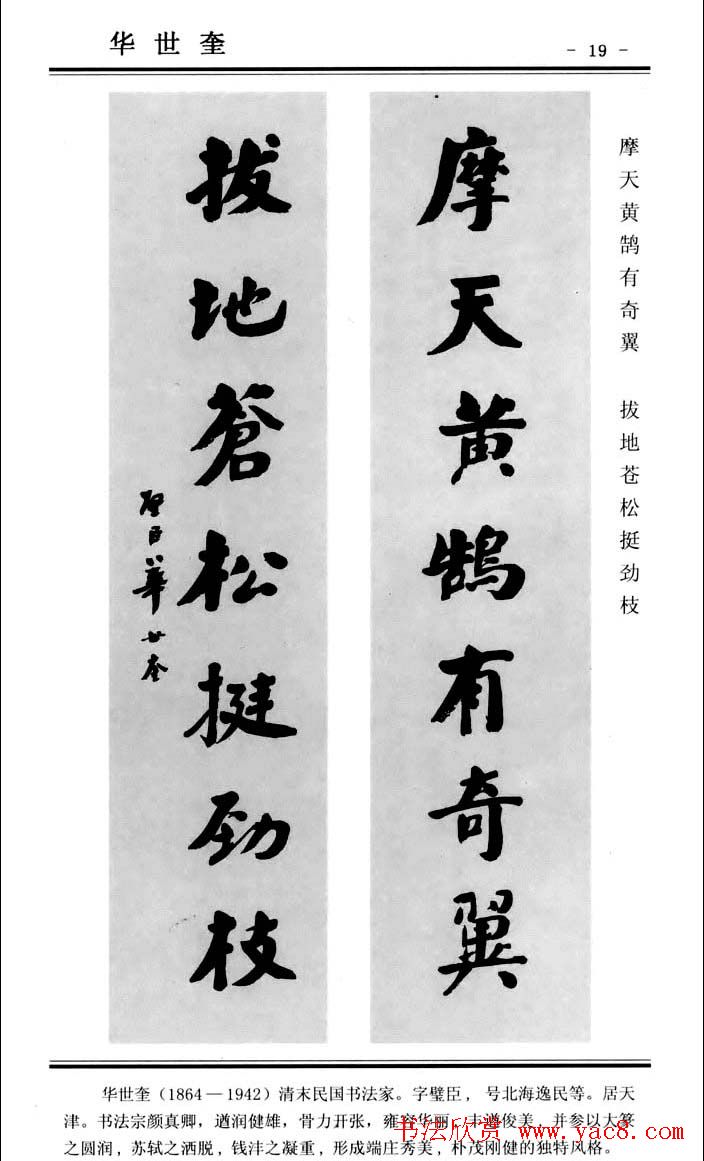 华世奎
- 19 -
摩天黄鹄有奇翼 拔地苍松挺劲枝
摩天黄鹄有奇翼
拔地蒼松挺劲枝
璧臣華世奎
华世奎（1864—1942）清末民国书法家。字璧臣，号北海逸民等。居天
津。书法宗颜真卿，遒润健雄，骨力开张，雍容华丽，丰俊美，并参以大篆
之圆润，苏轼之洒脱，钱沣之凝重，形成端庄秀美，朴茂刚健的独特风格。
书法欣赏 www.yac8.com